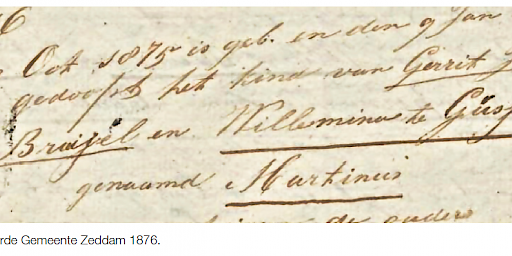 Oct 1875 is geb. en den 9 Jan
gedoopt het kind van Gerrit
Bruijel en Willemina te
genaamd Martinus
de ouders
rde Gemeente Zeddam 1876.